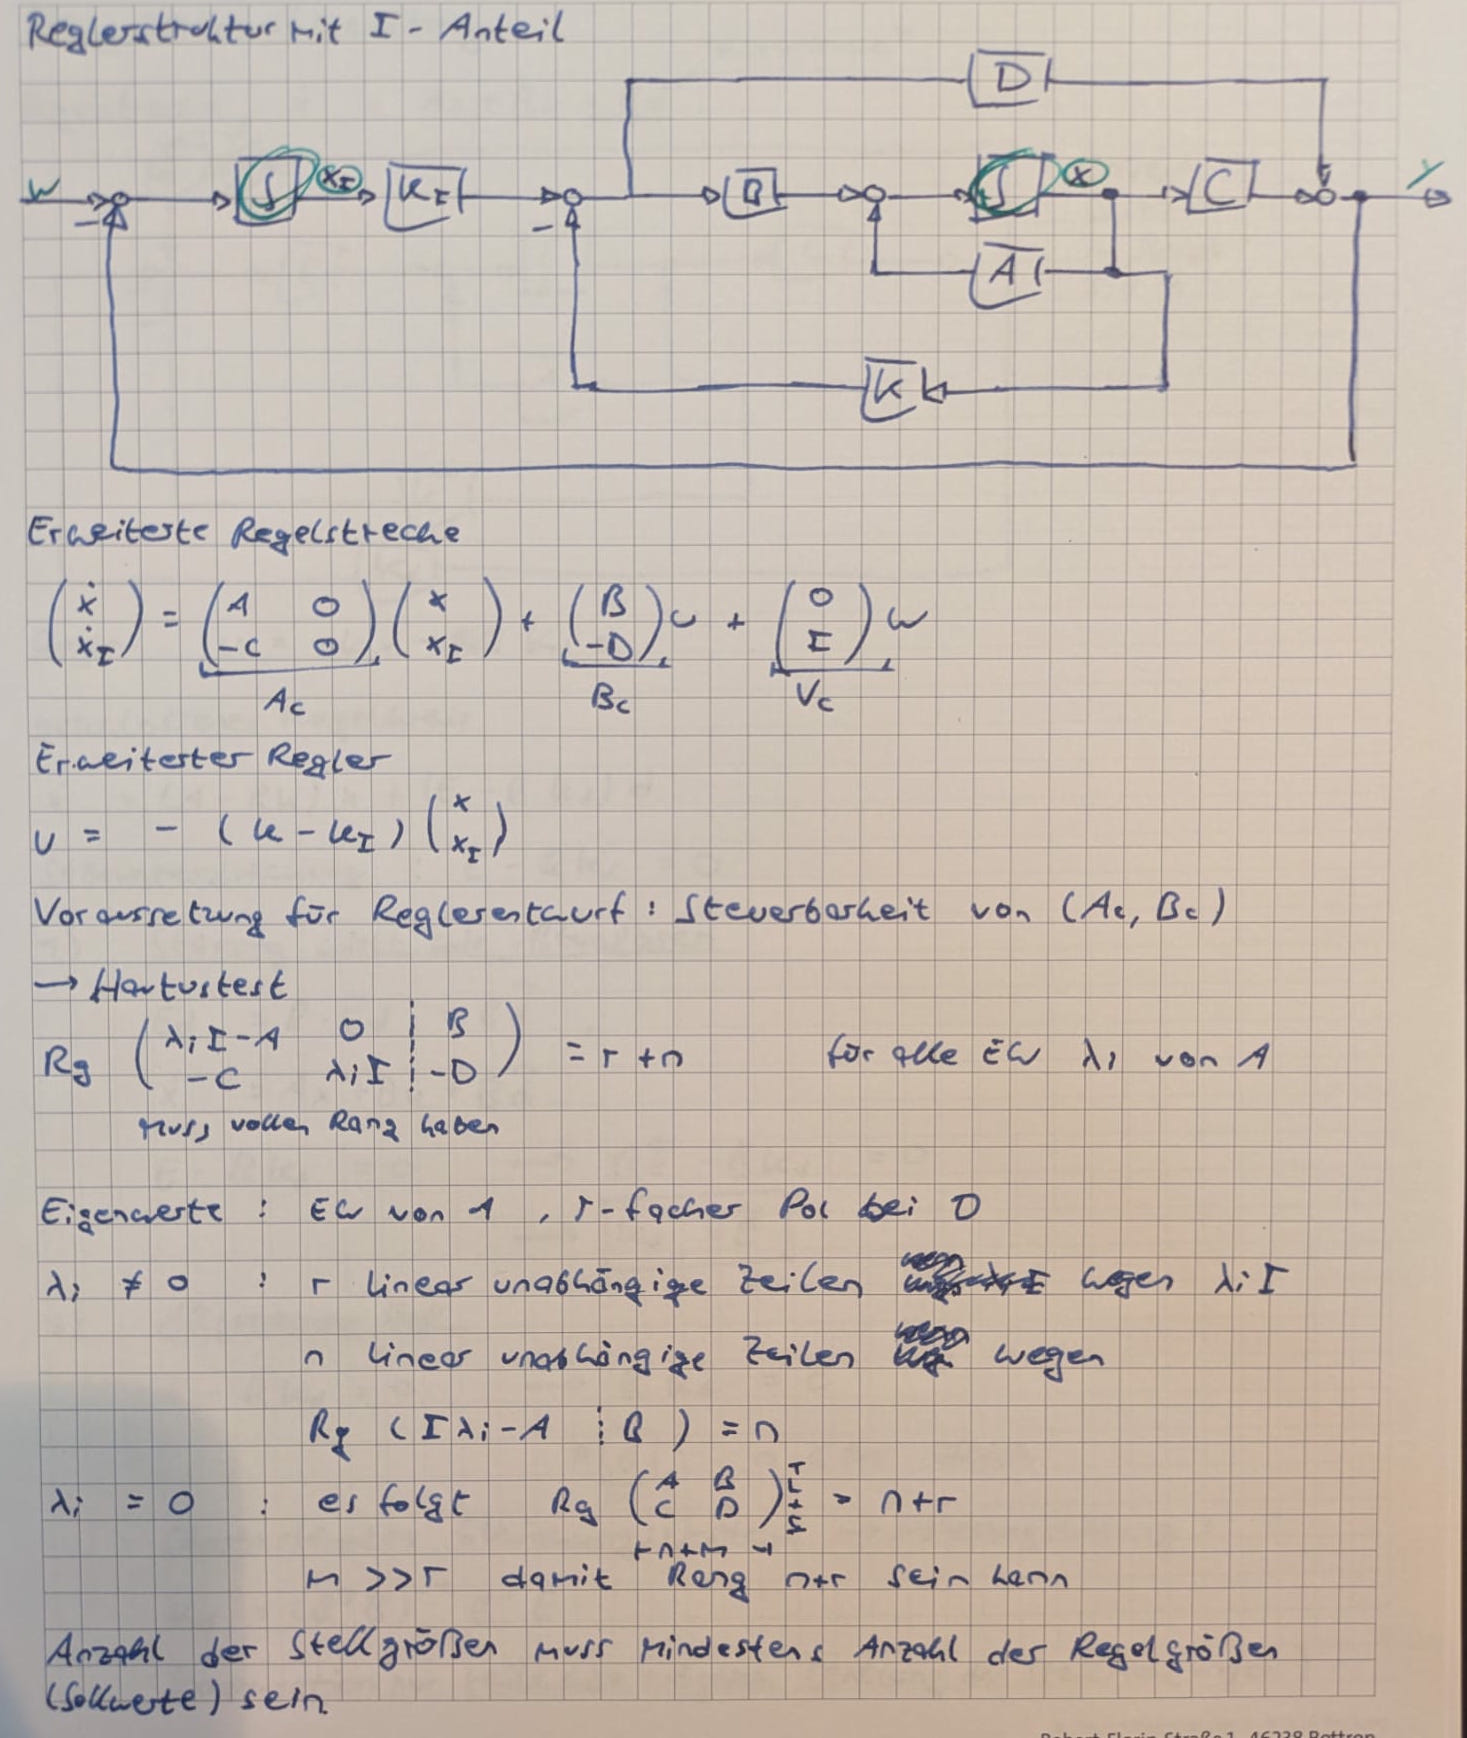 Reglerstruktur mit I - Anteil
D
w ∫ x_I K_I B ∫ x C y
-
-
A
K
Erweiterte Regelstrecke
(ẋ ẋ_I) = (A 0 -C 0) (x x_I) + (B -D) u + (0 I) w
A_c B_c V_c
Erweiterter Regler
u = - (K - K_I) (x x_I)
Voraussetzung für Reglerentwurf : Steuerbarkeit von (A_c, B_c)
→ Hautustest
Rg (λ_i I - A 0 ¦ B -C λ_i I ¦ -D) = r + n für alle EW λ_i von A
muss vollen Rang haben
Eigenwerte : EW von A , r-facher Pol bei 0
λ_i ≠ 0 : r linear unabhängige Zeilen wegen λ_i I
n linear unabhängige Zeilen wegen
Rg (I λ_i - A ¦ B) = n
λ_i = 0 : es folgt Rg (A B C D) = n+r
n+m
m >> r damit Rang n+r sein kann
Anzahl der Stellgrößen muss mindestens Anzahl der Regelgrößen
(Sollwerte) sein